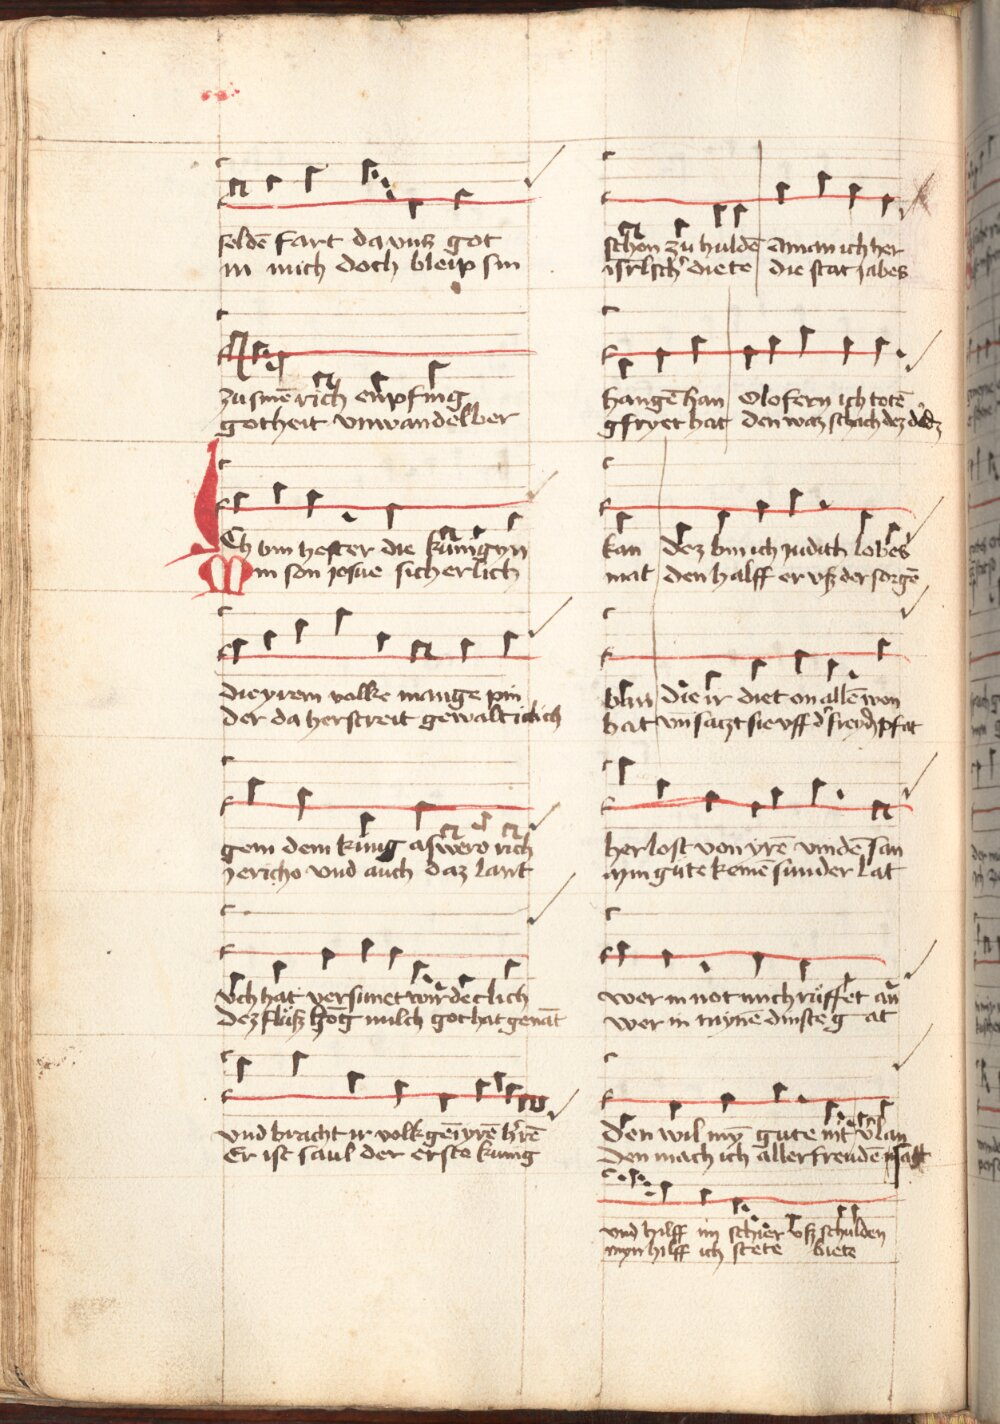 seldē fart da vns got
in mich doch bleip sin
zu sinē rich enpfing
gotheit vnwandelber
Ich bin hester die kunigyn
Min son josue sicherlich
die yrem volke mange pin
der da herstreit gewalticlich
gein dem kunig aswero rich
jericho vnd auch daz lant
Vch hat versunet wirdeclich
dez fluß hōg milch got hat genāt
vnd bracht ir volk gē yrē h'rē
Er ist saul der erste kunig
schon zu huldē aman ich her
isrl'sch' diete die stat jabes
hangē han Olofern ich totē
gfryet hat den waz schach dez
kan dez bin ich judith lobes
mat den halff er vß der sorgē
blun die ir diet on allē won
hat vn satzt sie vff d' freydē pfat
her lost von yrē vindē san
myn gute keinē sunder lat
wer in not mich rüffet an
wer in mynē dinste g at
den wil myn gute nit v'lan
den mach ich aller freudē satt
vnd hilff im schier vß schulden
myn hilff ich stete biete